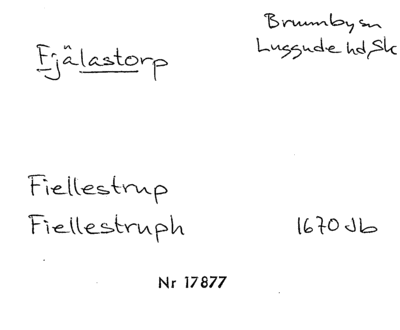 Fjälastorp
Brunnby sn
Luggude hd, Sk
Fiellestrup
Fiellestruph 1670 Jb
Nr 17877